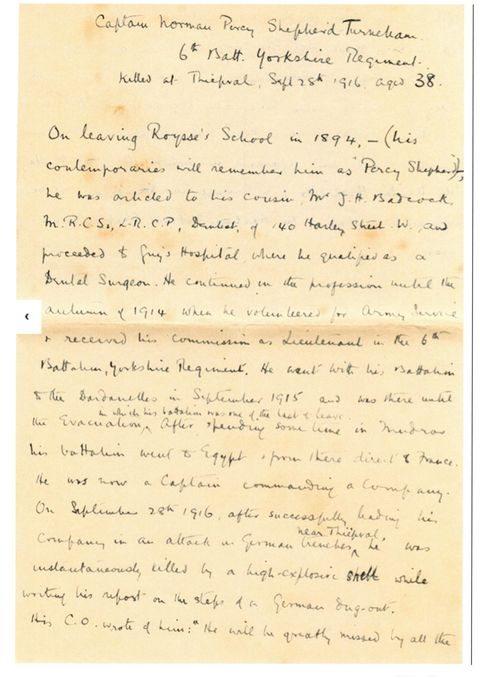 Captain Norman Percy Shepherd Turneham.
6th Batt. Yorkshire Regiment.
Killed at Thiepval, Sept 28th 1916, aged 38.
On leaving Roysse's School in 1894, – (his
contemporaries will remember him as "Percy Shepherd"),
he was articled to his cousin, Mr J. H. Badcock,
M.R.C.S., L.R.C.P., Dentist, of 140 Harley Street. W. and
proceeded to Guy's Hospital, where he qualified as a
Dental Surgeon. He continued in the profession until the
autumn of 1914 when he volunteered for Army Service
& received his commission as Lieutenant in the 6th
Battalion, Yorkshire Regiment. He went with his Battalion
to the Dardanelles in September 1915 and was there until
in which his battalion was one of the last to leave.
the Evacuation, After spending some time in Mudros
his battalion went to Egypt & from there direct to France.
He was now a Captain commanding a Company.
On September 28th 1916, after successfully leading his
near Thiepval,
Company in an attack on German trenches, he was
instantaneously killed by a high-explosive shell while
writing his report on the steps of a German dug-out.
His C.O. wrote of him: "He will be greatly missed by all the